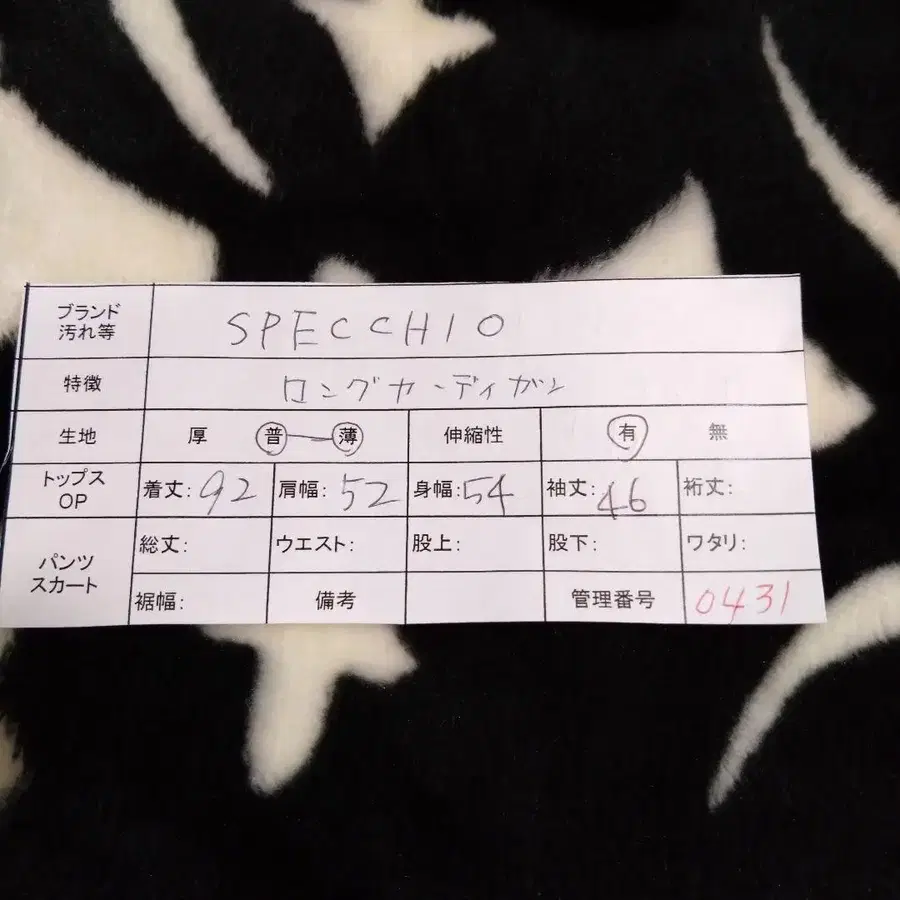 ブランド
汚れ等
SPECCHIO
特徴
ロングカーディガン
生地 厚 普 薄 伸縮性 有 無
トップス
OP
着丈: 92 肩幅: 52 身幅: 54 袖丈: 46 裄丈:
パンツ
スカート
総丈: ウエスト: 股上: 股下: ワタリ:
裾幅: 備考 管理番号 0431